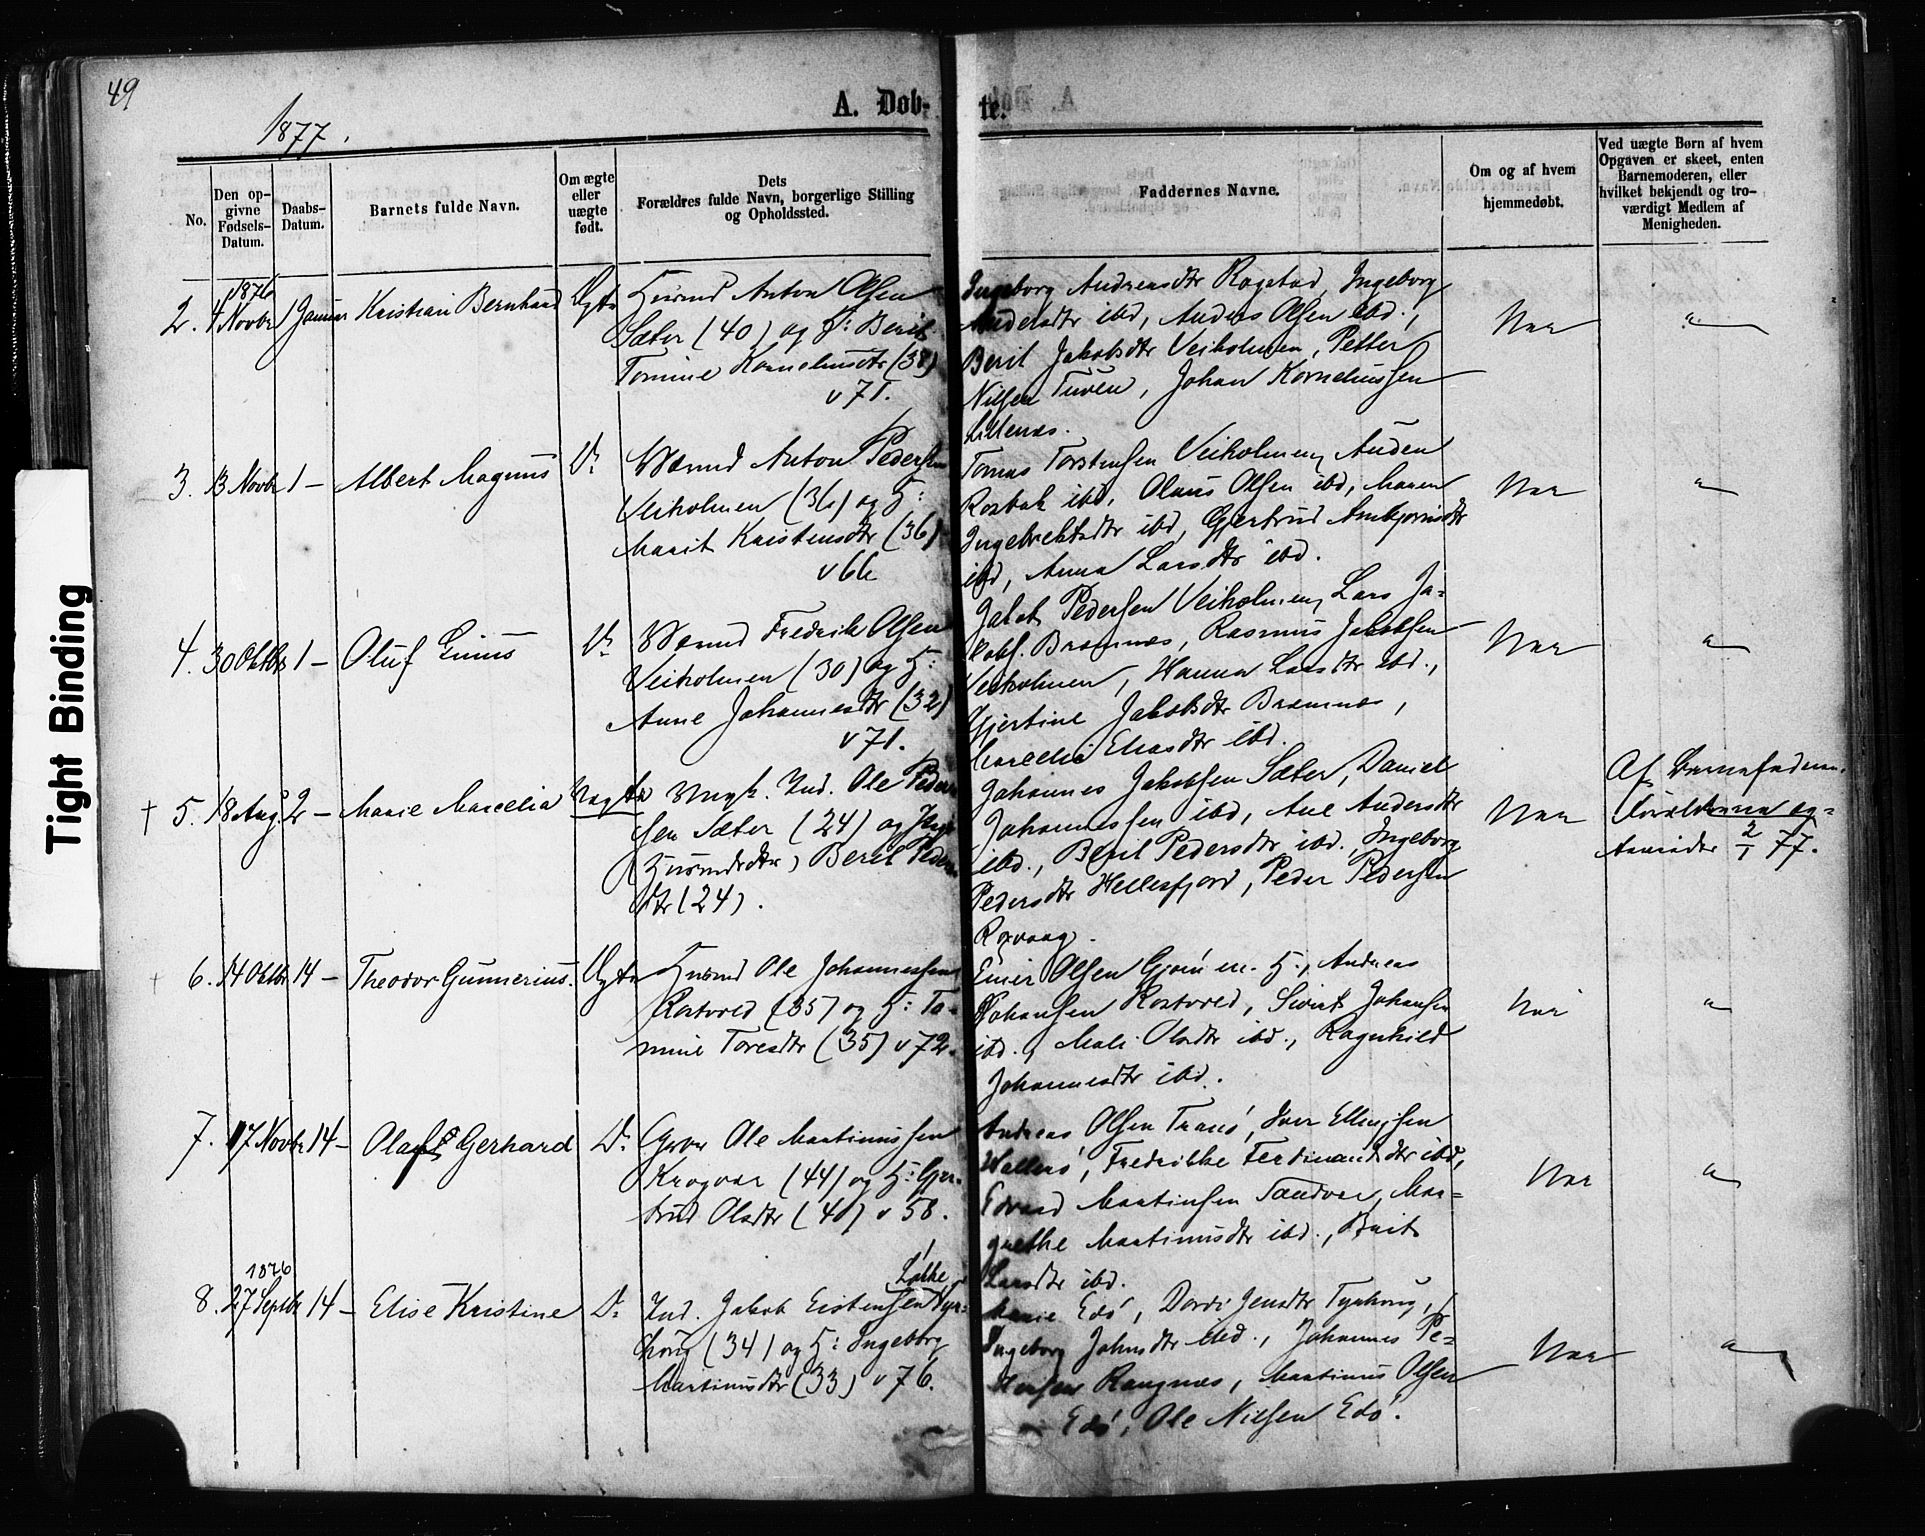 49
1877.
A. Døb-
te.
No.
Den op-
givne
Fødsels-
Datum.
Daabs-
Datum.
Barnets fulde Navn.
Om ægte
eller
uægte
født.
Dets
Forældres fulde Navn, borgerlige Stilling
og Opholdssted.
Faddernes Navne.
Om og af hvem
hjemmedøbt.
Ved uægte Børn af hvem
Opgaven er skeet, enten
Barnemoderen, eller
hvilket bekjendt og tro-
værdigt Medlem af
Menigheden.
1876
2. 4 Novbr 1 Januar Kristian Bernhard Ægte Husmd Anton Olsen
Sæter (40) og H: Berit
Tomine Korneliusdtr (38)
v 71.
Ingeborg Andreasdtr Rogstad, Ingeborg
Andersdtr ibd, Anders Olsen ibd.,
Beril Jakobsdtr Veiholmen, Petter
Nilsen Tuven, Johan Korneliussen
Lillenæs.
Nei "
3. 13 Novbr 1 — Albert Magnus Do Anton Pedersen
Veiholmen (36) og H:
Marit Kristensdtr (36)
v 66
Tomas Torstensen Veiholmen, Auden
Rosbak ibd, Olaus Olsen ibd, Maren
Ingebrektsdtr ibd, Gjertrud Arnbjørnsdtr
ibd, Anna Larsdtr ibd.
"
4. 30 Oktbr 1 — Oluf Do Fredrik Olsen
Veiholmen (30) og H:
Anne Johannesdtr (32)
v 71.
Jakob Pedersen Veiholmen, Lars Ja-
kobs. Bremnæs, Rasmus Jakobsen
Veiholmen, Hanna Larsdtr ibd.,
Gjertine Jakobsdtr Bremnæs,
Eliasdtr ibd.
"
† 5. 18 Aug. 2 — Marie Marcelia Uægte Ungk. Ind. Ole Peder-
sen Sæter (24) og Pige
(Husmdsdtr) Berit Peders-
dtr (24).
Johannes Jakobsen Sæter, Daniel
Johannessen ibd, Ane Andersdtr
ibd., Beril Pedersdtr ibd., Ingeborg
Pedersdtr Hellesfjord, Peder Pedersen
Rørvaag.
Af Barnefaderen.
Forældrene
2/1 77.
† 6. 14 Oktbr 14 — Theodor Gunnerius. Ægte Husmd Ole Johannessen
Rostvold (35) og H: To-
mine Toresdtr (35) v 72.
Einer Olsen Gjøen m. H., Andreas
Johansen Rostvold, Sivert Johansen
ibd., Mali Olsdtr ibd., Ragnhild
Johannesdtr ibd.
Nei "
7. 17 Novbr 14 — Olaf Gerhard Do Ole Martinussen
Krogvær (44) og H: Gjer-
trud Olsdtr (40) v 58.
Andreas Olsen Tranø, Iver Ellingsen
Wallerø, Fredrikke Ferdinandsdtr ibd,
Edvard Martinsen Sandvær, Mar-
grethe Martinusdtr ibd., Berit
Larsdtr ibd.
"
1876
8. 27 Septbr 14 — Elise Kristine Do Ind. Jakob Eistensen Løkke, Tyr-
houg (34) og H: Ingeborg
Martinusdtr (33) v 76.
Marie Edø, Dordi Jensdtr Tyrhoug,
Ingeborg Johnsdtr ibd., Johannes Pe-
tersen Rangnæs, Martinus Olsen
Edø, Ole Nielsen Edø.
"
Tight Binding